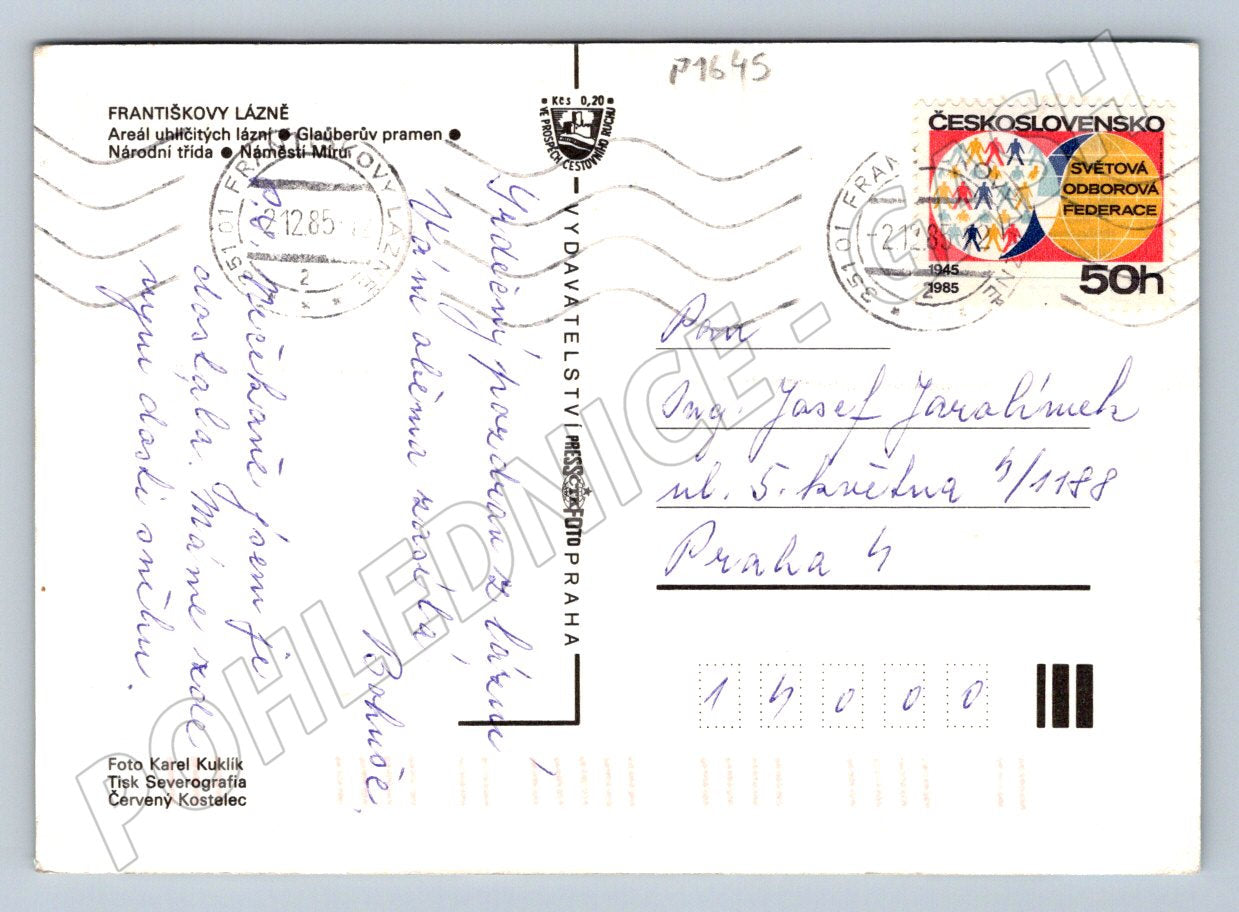 P1645
FRANTIŠKOVY LÁZNĚ
Areál uhličitých lázní ● Glaüberův pramen ●
Národní třída ● Náměstí Míru
Kčs 0,20
VE PROSPĚCH CESTOVNÍHO RUCHU
VYDAVATELSTVÍ PRESSFOTO PRAHA
ČESKOSLOVENSKO
SVĚTOVÁ
ODBOROVÁ
FEDERACE
1945
1985
50h
351 01 FRANTIŠKOVY LÁZNĚ
-2.12.85
2
351 01 FRANTIŠKOVY LÁZNĚ
-2.12.85
2
Srdečný pozdrav z lázní
Vám oběma zasílá,
Bohuše,
jsem je
dostala. Máme zde
nyní dosti sněhu.
Pan
Ing. Josef Jarolímek
ul. 5. května 4/1188
Praha 4
14000
Foto Karel Kuklík
Tisk Severografia
Červený Kostelec
POHLEDNICE - CZ